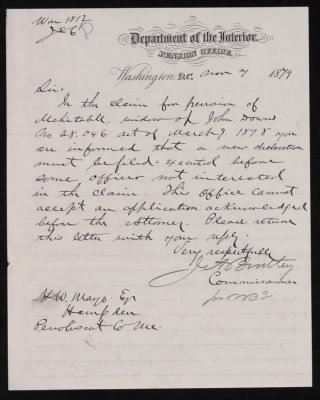 War 1812
Department of the Interior,
PENSION OFFICE,
Washington, D.C. Nov 7 1879
Sir,
In the claim for pension of
Mehetable, widow of John Down
No 28.046 act of March 9 1878 you
are informed that a new declaration
must be filed executed before
some officer not interested
in the claim. This Office cannot
accept an application acknowledged
before the Attorney. Please return
this letter with your reply.
Very respectfully
J A Bentley
Commissioner
H W. Mayo, Esqr
Hampden
Penobscot Co Me.